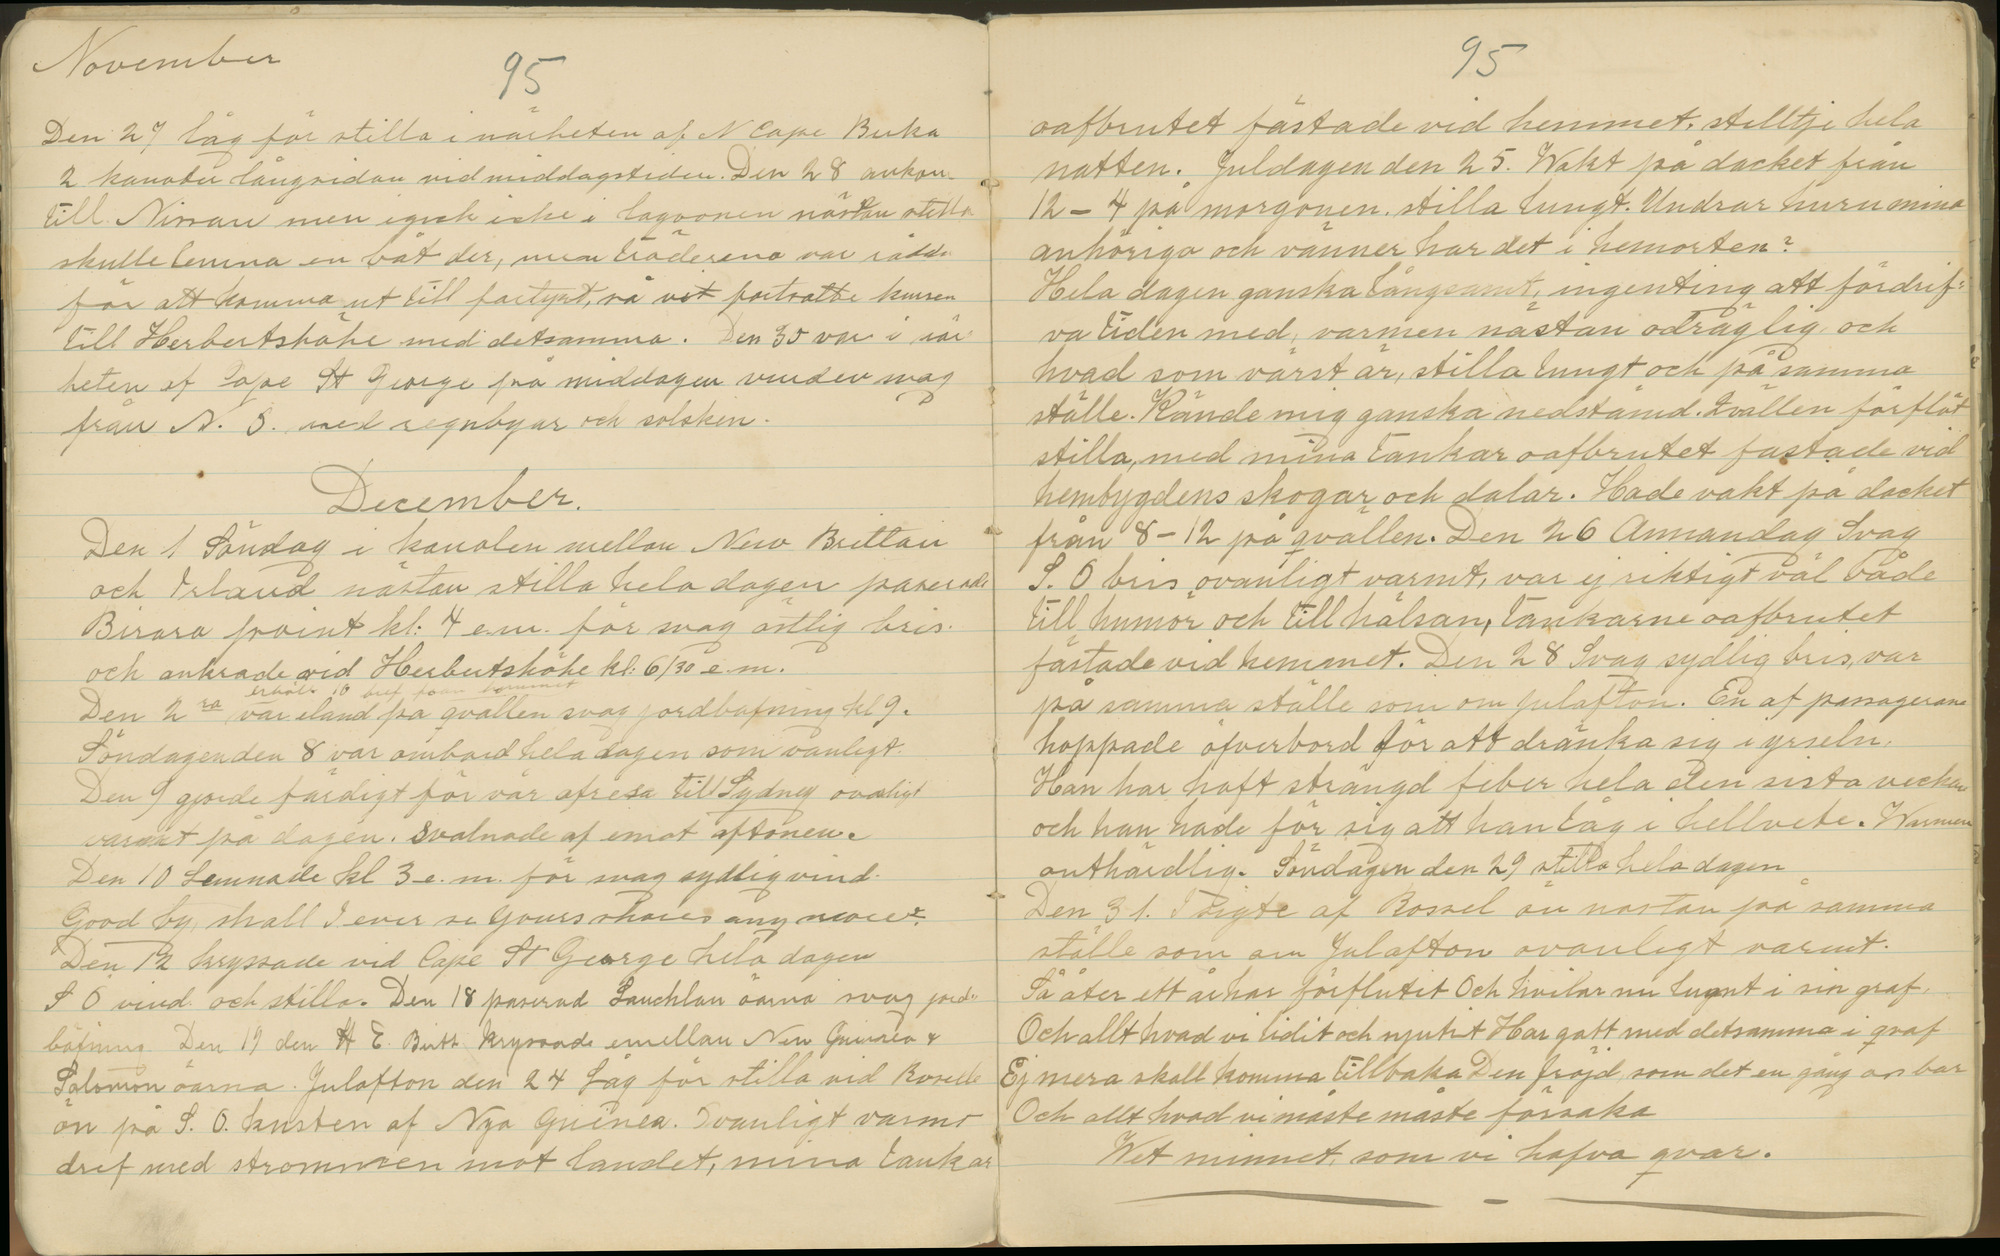 November
95
Den 27 låg för stilla i närheten af N Cape Buka
2 kanoter långsidan vid middagstiden. Den 28 ankom
till Nissan men igick icke i lagoonen nästan stilla
skulle lemna en båt der, men träderena var rädda
för att komma ut till fartyget, så vi fortsatte kursen
till Herbertshöhe med detsamma. Den 30 var i när
heten af Cape St George på middagen vinden svag
från N. O. med regnbyar och solsken.
December.
Den 1 Söndag i kanalen mellan New Brittain
och Irland nästan stilla hela dagen paserade
Birara point kl: 4 e.m. för svag östlig bris.
och ankrade vid Herbertshöhe kl: 6/30 e.m.
erhöll 10 bref från hemmet
Den 2 ra var iland på qvällen svag jordbäfning kl 9.
Söndagen den 8 var ombord hela dagen som vanligt.
Den 9 gjorde färdigt för vår afresa till Sydney ovanligt
varmt på dagen. Svalnade af emot aftonen.
Den 10 Lemnade kl 3 e.m. för svag sydlig vind.
Good by, shall I ever se yours shores any more?
Den 12 kryssade vid Cape St George hela dagen
S O vind och stilla. Den 18 paserad Lauchlan öarna svag jord-
bäfning Den 19 den kryssade emellan New Guinea &
Salomon öarna. Julafton den 24 Låg för stilla vid Rossell
ön på S. O. kusten af Nya Guinea. Ovanligt varmt
dref med strommen mot landet, mina tankar
95
oafbrutet fästade vid hemmet. stilltje hela
natten. Juldagen den 25. Wakt på dacket från
12 – 4 på morgonen. stilla lungt. Undrar huru mina
anhöriga och vänner har det i hemorten?
Hela dagen ganska långsamt, ingenting att fördrif=
va tiden med, varmen nästan odräglig och
hvad som värst är, stilla lungt och på samma
ställe. Kände mig ganska nedstämd. Qvällen förflöt
stilla, med mina tankar oafbrutet fastade vid
hembygdens skogar och dalar. Hade vakt på dacket
från 8 – 12 på qvällen. Den 26 Annandag Svag
S. O bris ovanligt varmt, var ej riktigt väl både
till humör och till hälsan, tankarne oafbrutet
fästade vid hemmet. Den 28 Svag sydlig bris, var
på samma ställe som om julafton. En af passagerarne
hoppade öfverbord för att dränka sig i yrseln.
Han har haft strängd feber hela den sista veckan
och han hade för sig att han låg i hellvete. Warmen
outhärdlig. Söndagen den 29 stilla hela dagen
Den 31. I sigte af Rossel ön nästan på samma
ställe som om Julafton ovanligt varmt.
Så åter ett år har förflutit Och hvilar nu lugnt i sin graf.
Och allt hvad vi lidit och njutit Har gått med detsamma i qraf
Ej mera skall komma tillbaka Den fröjd som det en gång oss bar
Och allt hvad vi måste måste försaka
Wet minnet, som vi hafva qvar.